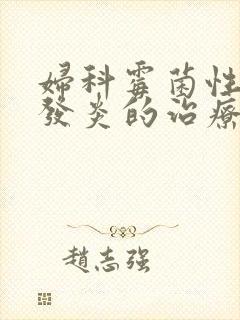 婦科霉菌性
發炎的治療
趙志强